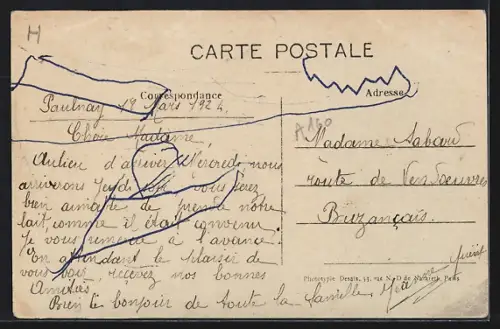 H
CARTE POSTALE
Correspondance
Adresse
Paulnay 18 Mars 1924
Chère Madame,
Aulieu d'arriver Mercredi nous
arriverons Jeudi vous serez
bien aimable de prendre notre
lait, comme il était convenu
Je vous remercie à l'avance.
En attendant le plaisir de
vous voir, recevez nos bonnes
Amitiés
Bien le bonjour de toute la famille
A160
Madame Sabard
route de Vendoeuvres
Buzançais.
Phototypie Dessin, 15, rue N.-D de Nazareth, Paris